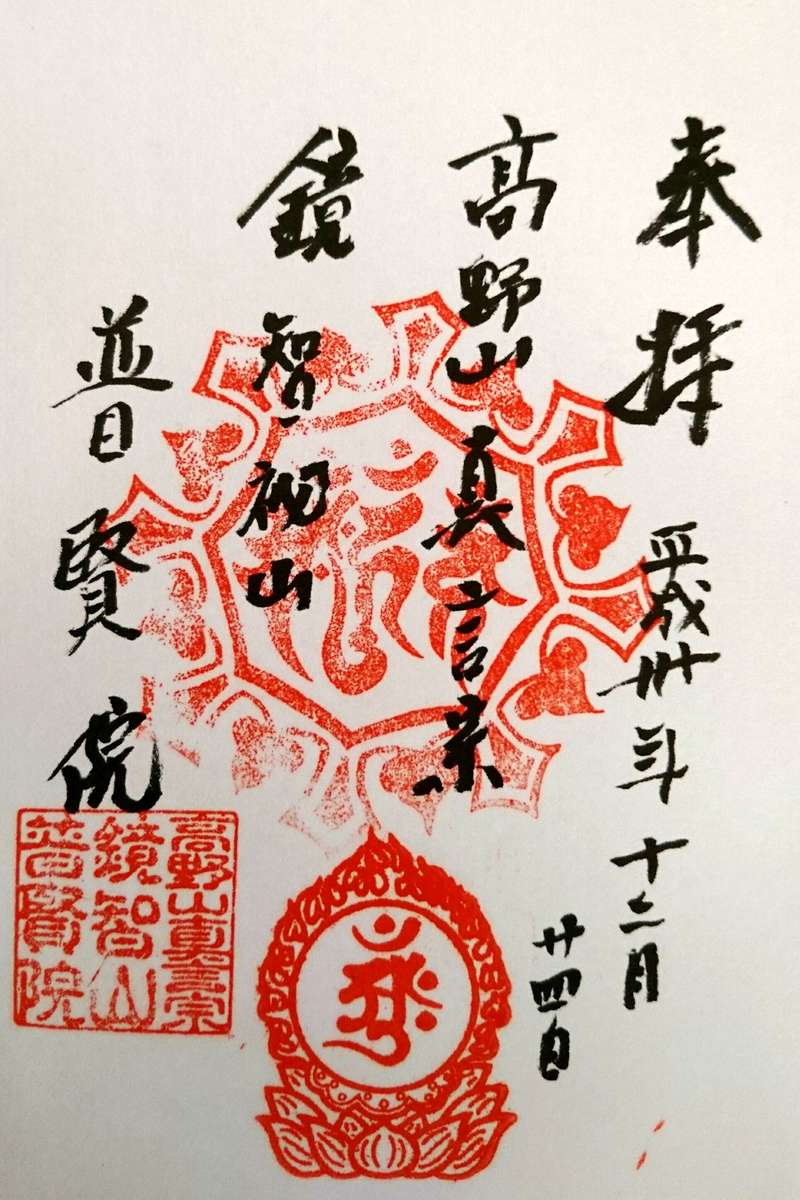 奉拝
平成卅年十二月
廿四日
高野山真言宗
鏡智山
普賢院
高野山真言宗
鏡智山
普賢院